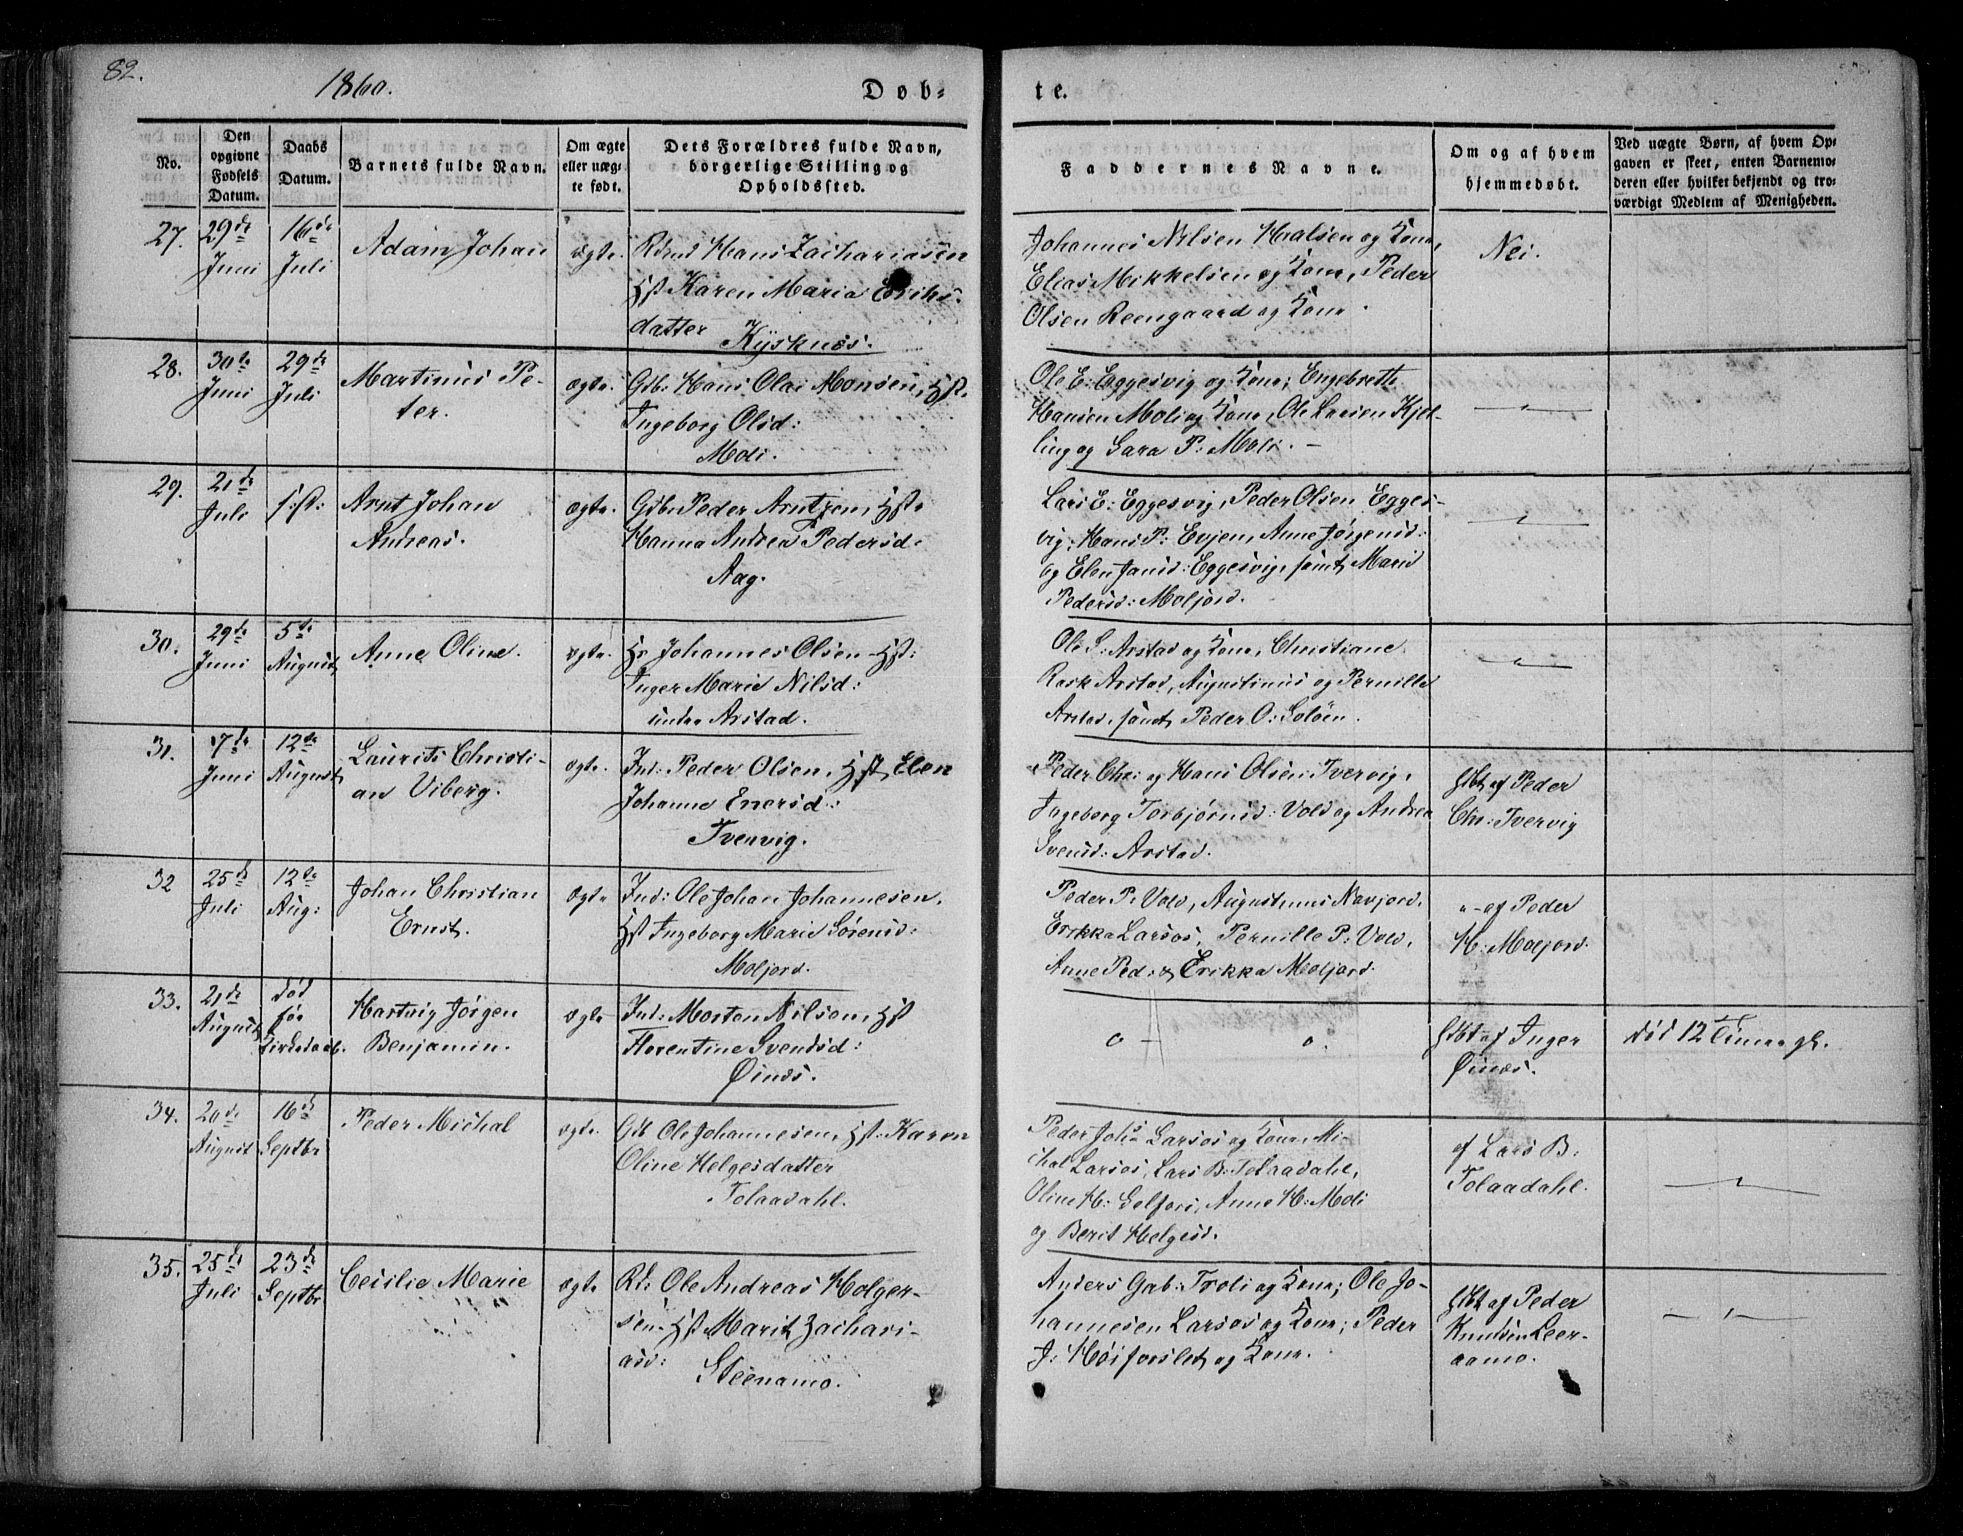 82.
1860.
Døb-
te.
No.
Den
opgivne
Fødsels
Datum.
Daabs
Datum.
Barnets fulde Navn.
Om ægte
eller uæg-
te født.
Dets Forældres fulde Navn,
borgerlige Stilling og
Opholdssted.
Faddernes Navne.
Om og af hvem
hjemmedøbt.
Ved uægte Børn, af hvem Op-
gaven er skeet, enten Barnemo-
deren eller hvilket bekjendt og tro-
værdigt Medlem af Menigheden.
27.
29de
Juni
16de
Juli
Adam Johan
ægte.
Hans Zachariasen
Hst Karen Maria Eriks-
datter
Kysknæs.
Johannes Nilsen Halsen og Kone,
Elias Mikkelsen og Kone, Peder
Olsen Reengaard og Kone.
Nei.
28.
30te
Juni
29de
Juli
Martinus Pe-
ter.
ægte.
Gdb: Hans Olai Monsen, Hst.
Ingeborg Olsd:
Moli.
Ole E: Eggesvig og Kone; Engebrett
Hansen Moli og Kone, Ole Larsen Kjel-
ling og Sara P: Moli. –
29.
21de
Juli
s: st:
Arnt Johan
Andreas.
ægte.
Gdb: Peder Arntzen, Hst.
Hanna Andrea Pedersd.
Aag.
Lars E: Eggesvig, Peder Olsen Egges-
vig, Hans P: Evjen, Anne Jørgensd:
og Elen Jansd: Eggesvig, samt Marie
Pedersd: Moljord.
30.
29de
Juni
5te
August
Anne Oline.
ægte.
Johannes Olsen Hst:
Inger Marie Nilsd:
under Arstad.
Ole S: Arstad og Kone, Christiane
Rask Arstad, Augustinus og Pernille
Arstad, samt Peder O: Soløen.
31.
17de
Juni
12te
August
Laurits Christi-
an Viberg.
ægte.
Ind: Peder Olsen, Hst Elen
Johanne Enersd:
Tvervig.
Peder Chr: og Hans Olsen Tvervig,
Ingeborg Torbjørnsd: Vold og Andrea
Svensd: Arstad.
hbt af Peder
Chr: Tvervig
32
25de
Juli
12te
Aug:
Johan Christian
Ernst.
Ægte
Ind: Ole Johan Johannesen,
Hst Ingeborg Marie Sørensd:
Moljord.
Peder P: Vold, Augustinus Navjord,
Erikka Larsos, Pernille P: Vold,
Anne Ped: & Erikka Moljord.
"- af Peder
H: Moljord.
33.
21de
August
død
før
Kirkedaab.
Hartvig Jørgen
Benjamin.
ægte
Ind: Morten Nilsen, Hst
Florentine Svendsd:
Øines.
o – o.
hbt af Inger
Øines.
død 12 Timer gl.
34.
20de
August
16de
Septbr
Peder Michal
ægte.
Gdb Ole Johannesen, Hst: Karen
Oline Helgesdatter
Tolaadahl.
Peder Johs Larsos og Kone, Mi-
chal Larsos, Lars B: Tolaadahl,
Oline H: Selfors, Anne H: Moli
og Berit Helgesd.
af Lars B:
Tolaadahl.
35.
25de
Juli
23de
Septbr
Cecilie Marie
ægte
Ole Andreas Holger-
sen Hst Marit Zachari-
asd:
Steenamo.
Anders Gab: Troli og Kone; Ole Jo-
hannesen Larsos og Kone; Peder
J: Høiforslet og Kone.
hbt af Peder
Knudsen Leer-
aamo.